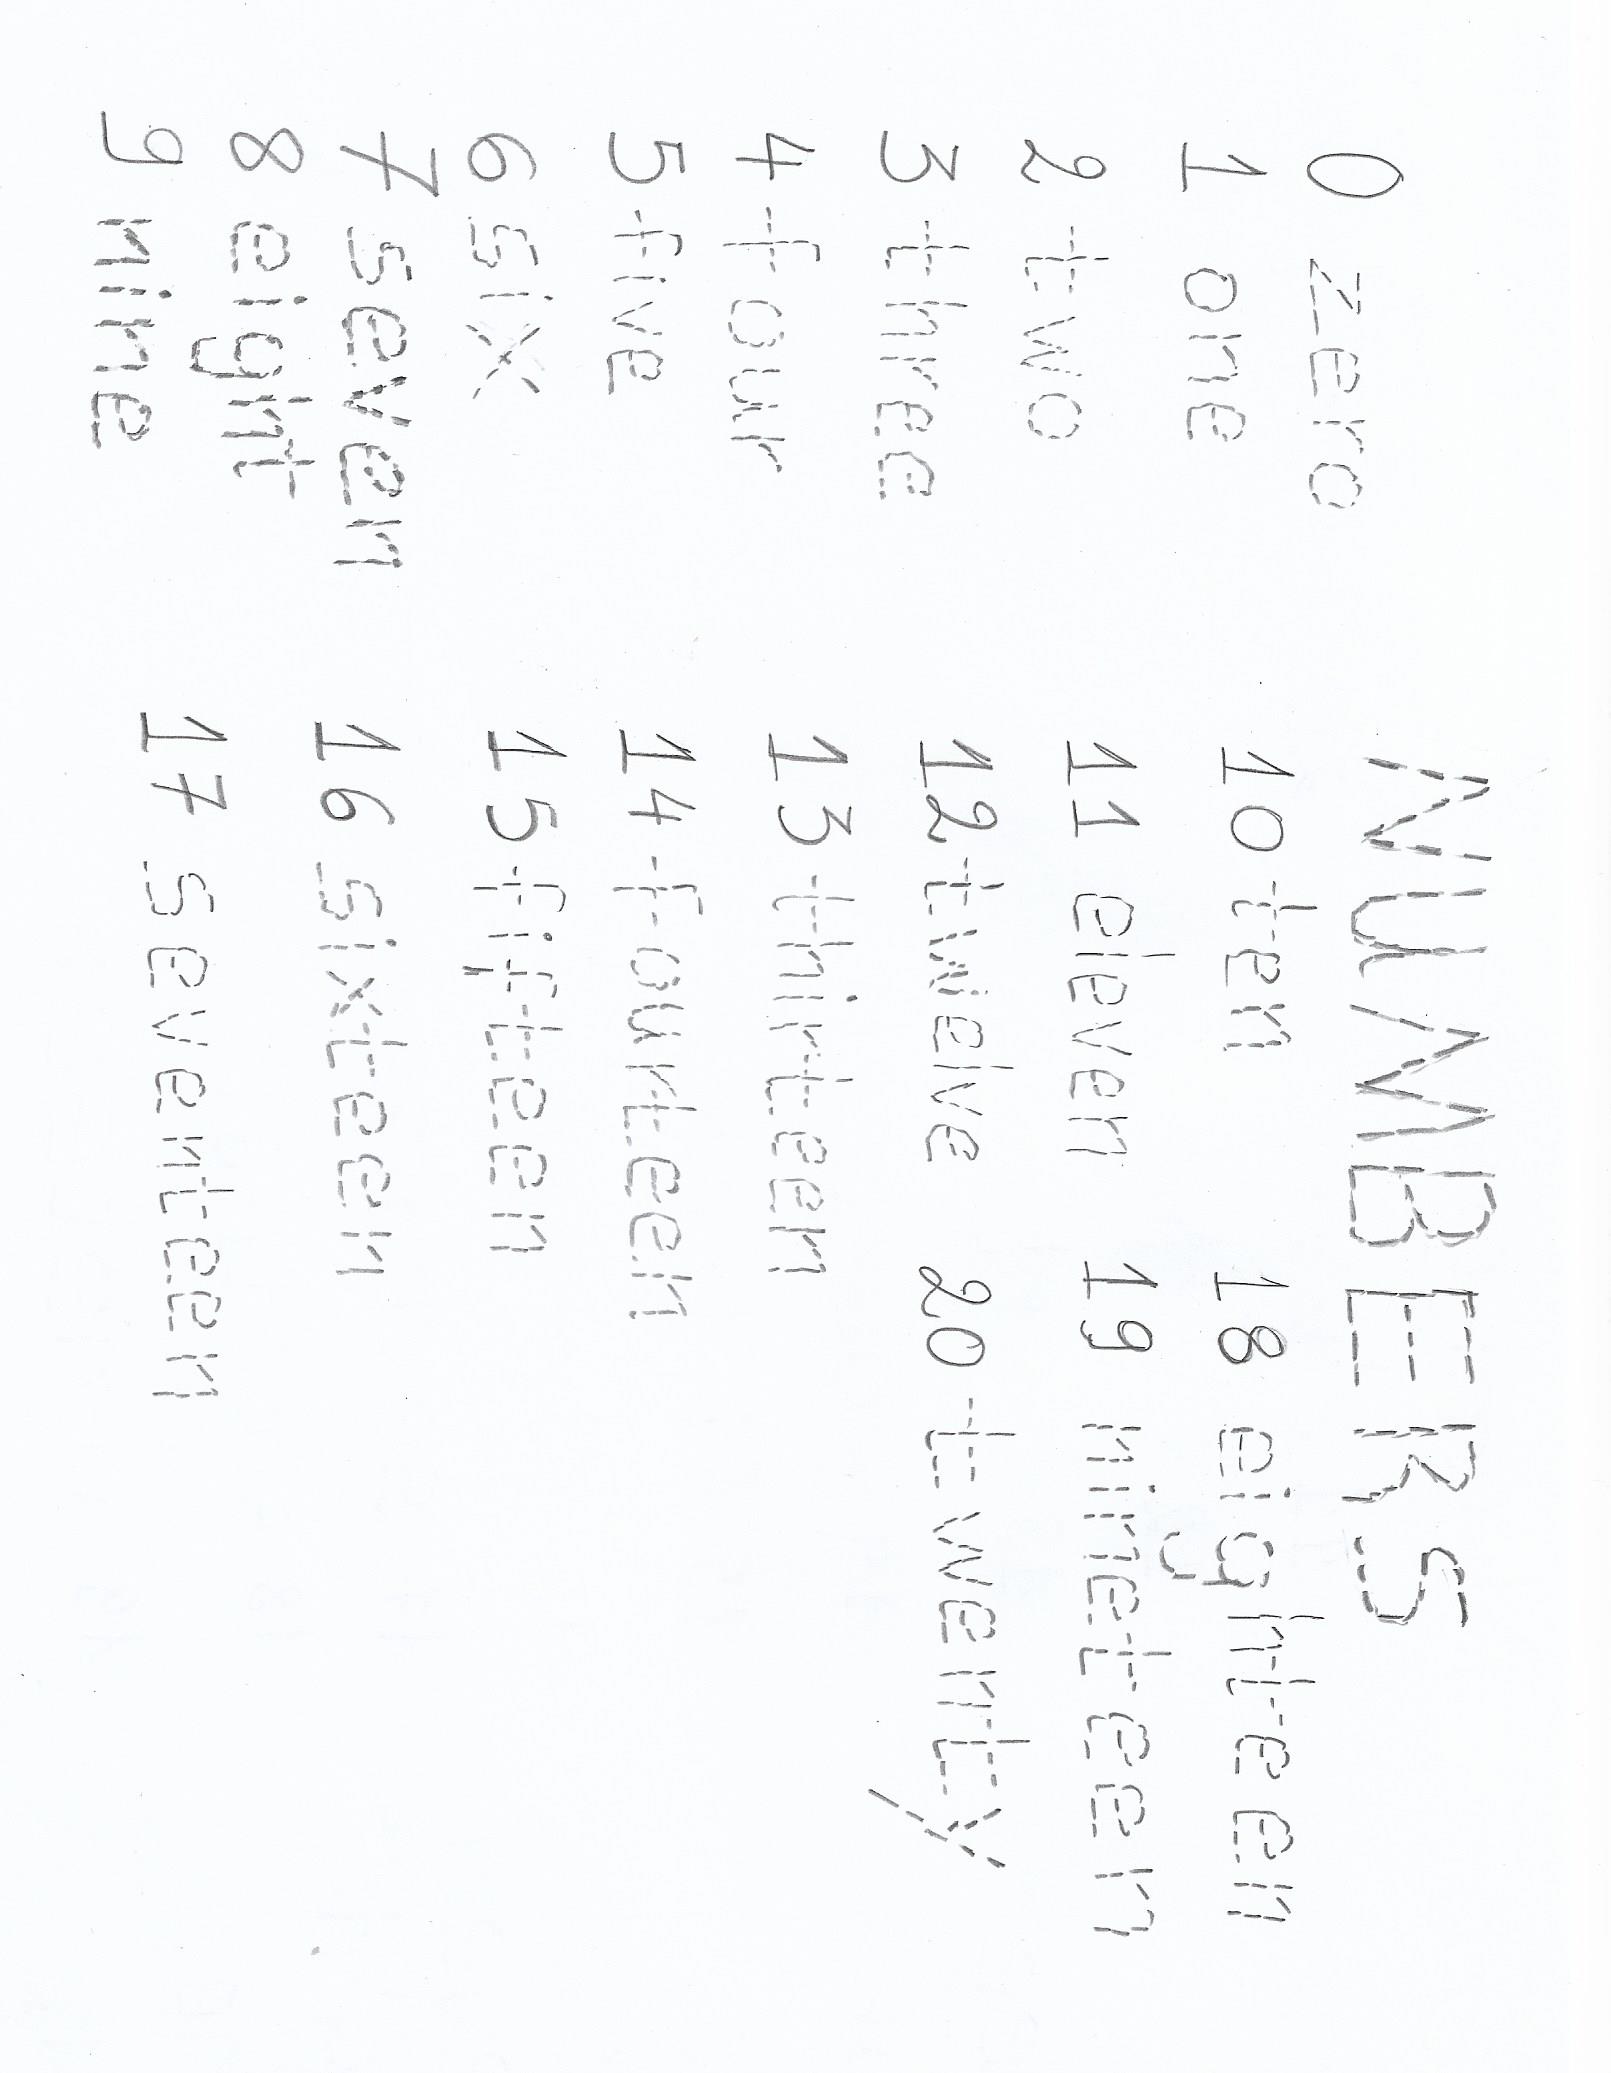 NUMBERS
0 zero
1 one
2 two
3 three
4 four
5 five
6 six
7 seven
8 eight
9 nine
10 ten
11 eleven
12 twelve
13 thirteen
14 fourteen
15 fifteen
16 sixteen
17 seventeen
18 eighteen
19 nineteen
20 twenty